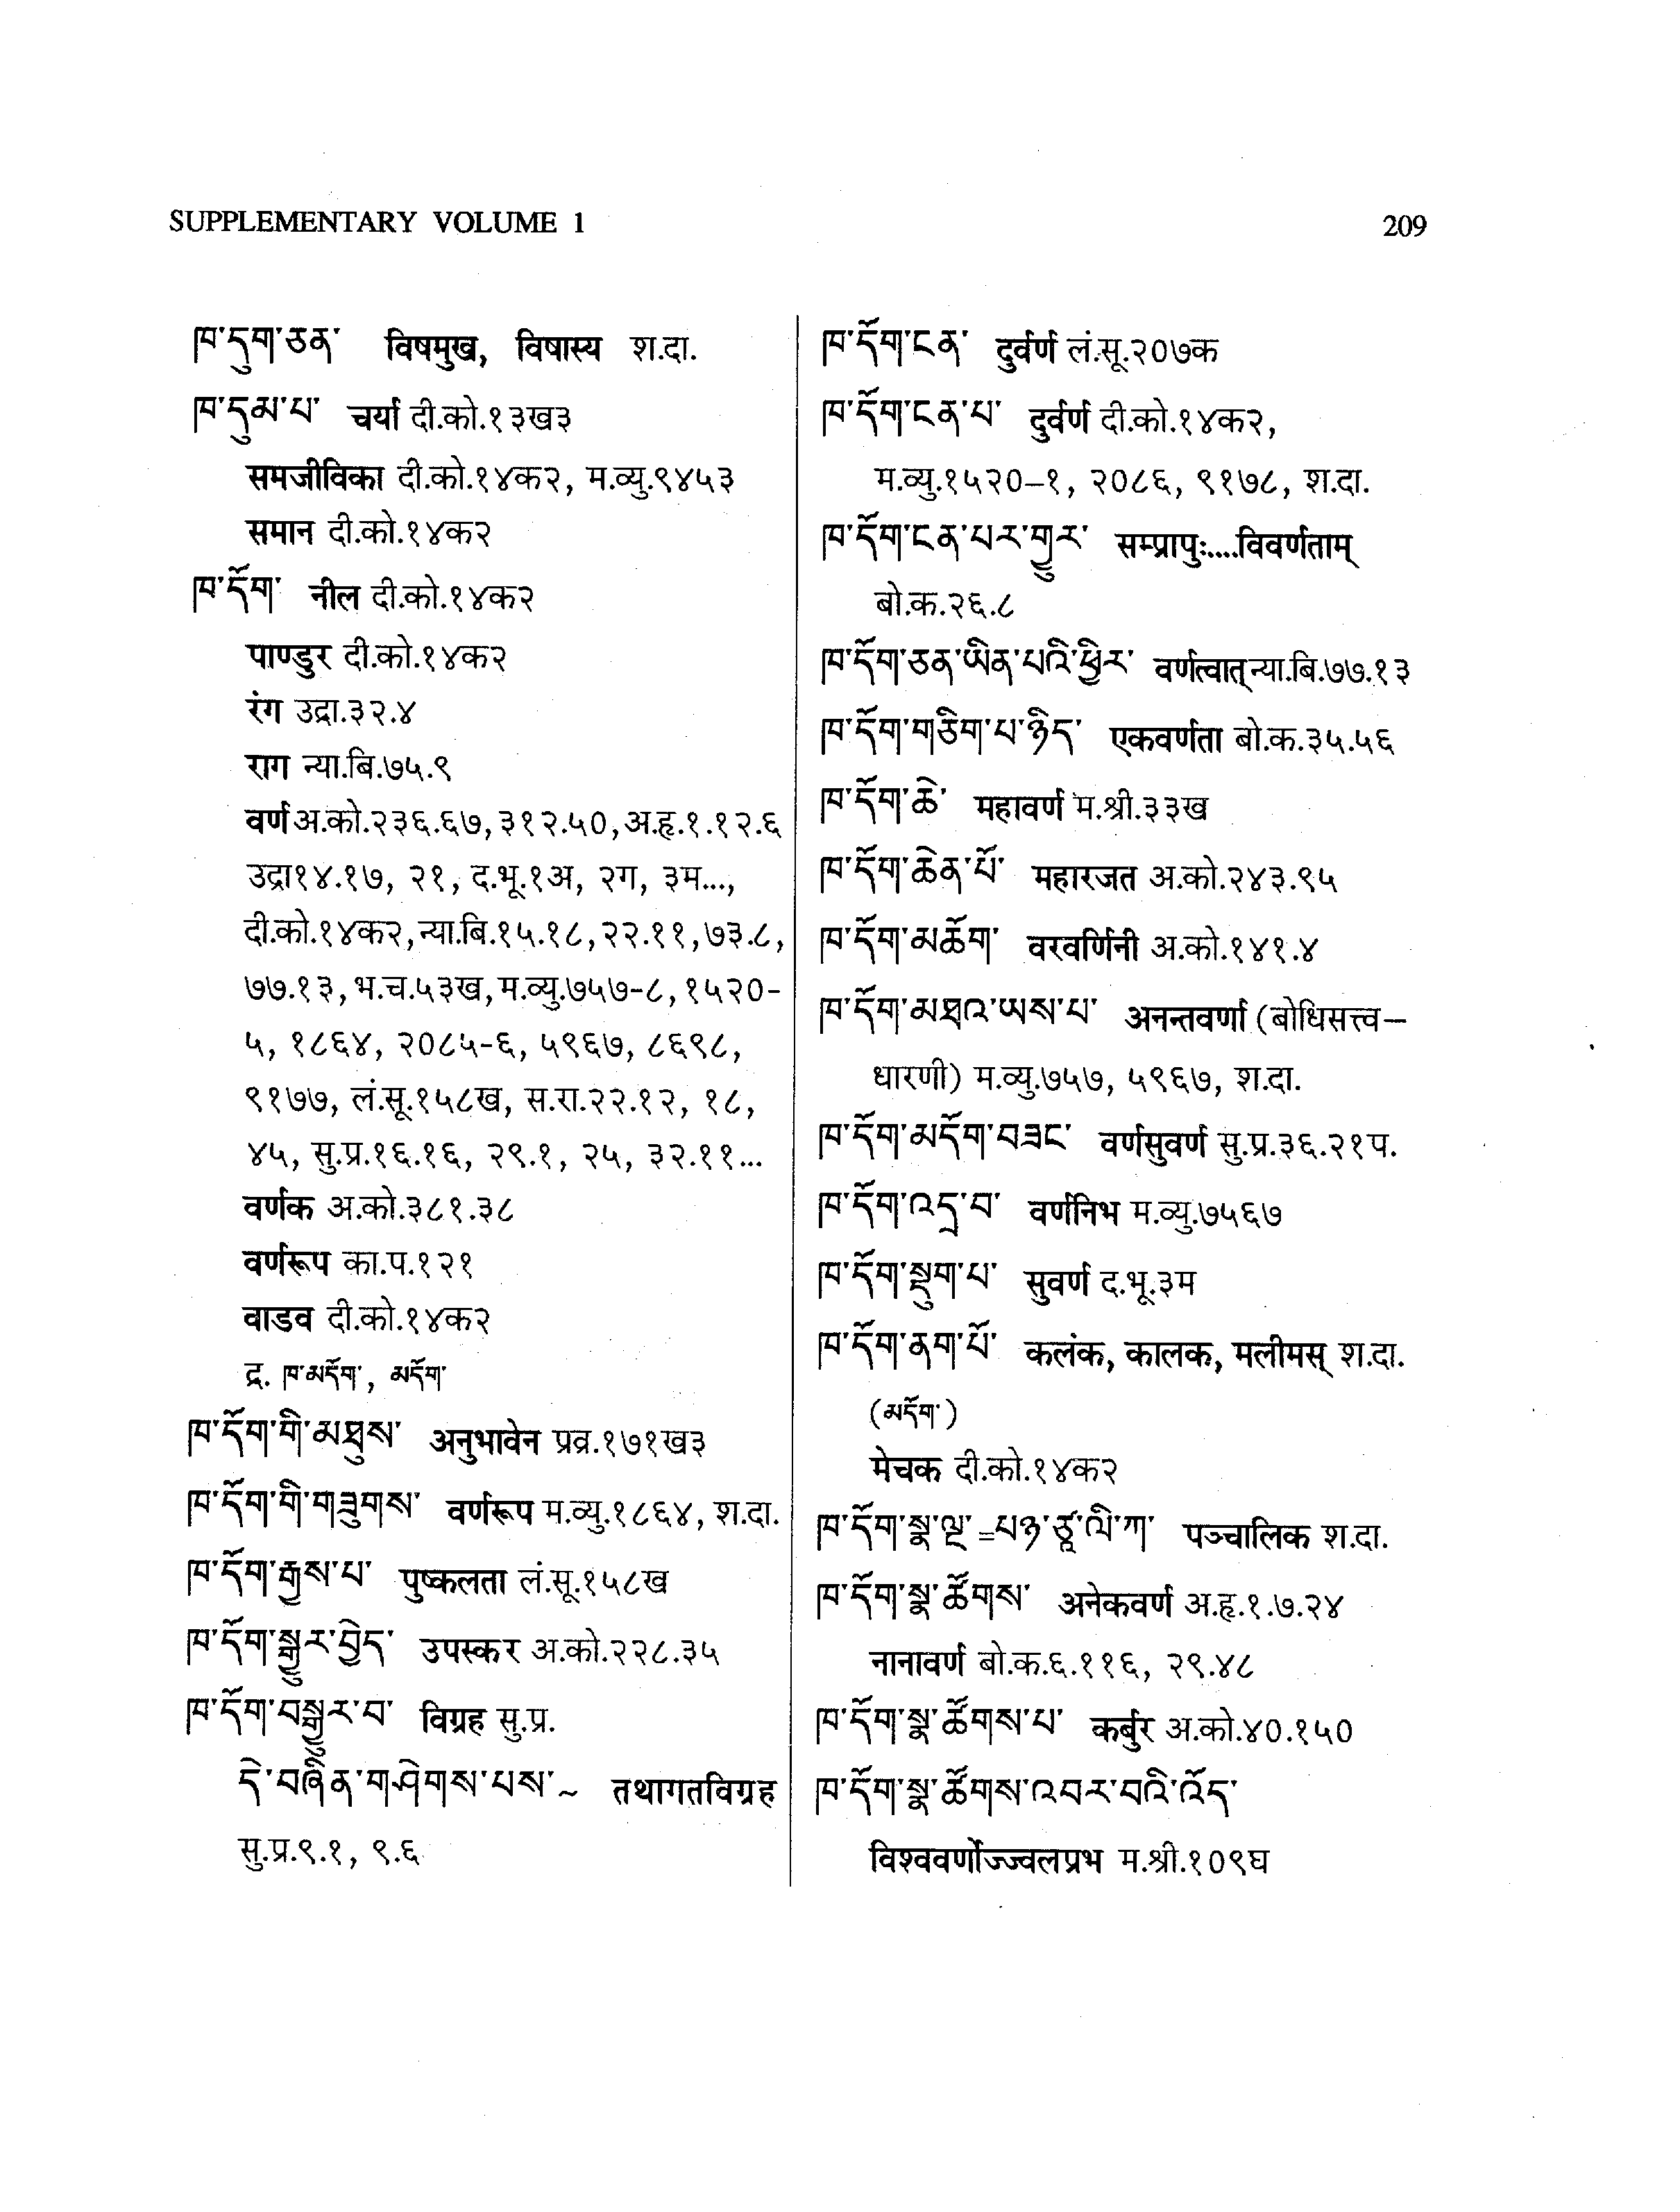 SUPPLEMENTARY VOLUME 1
209
ཁ་དུག་ཅན་ विषमुख, विषास्य श.दा.
ཁ་དུམ་པ་ चर्या दी.को.१३ख३
समजीविका दी.को.१४क२, म.व्यु.९४५३
समान दी.को.१४क२
ཁ་དོག་ नील दी.को.१४क२
पाण्डुर दी.को.१४क२
रंग उद्रा.३२.४
राग न्या.बि.७५.९
वर्ण अ.को.२३६.६७, ३१२.५०, अ.हृ.१.१२.६
उद्रा१४.१७, २१, द.भू.१अ, २ग, ३म...,
दी.को.१४क२, न्या.बि.१५.१८, २२.११, ७३.८,
७७.१३, भ.च.५३ख, म.व्यु.७५७-८, १५२०-
५, १८६४, २०८५-६, ५९६७, ८६९८,
९१७७, लं.सू.१५८ख, स.रा.२२.१२, १८,
४५, सु.प्र.१६.१६, २९.१, २५, ३२.११...
वर्णक अ.को.३८१.३८
वर्णरूप का.प.१२१
वाडव दी.को.१४क२
द्र. ཁ་མདོག་, མདོག་
ཁ་དོག་གི་མཐུས་ अनुभावेन प्रव्र.१७१ख३
ཁ་དོག་གི་གཟུགས་ वर्णरूप म.व्यु.१८६४, श.दा.
ཁ་དོག་རྒྱས་པ་ पुष्कलता लं.सू.१५८ख
ཁ་དོག་སྒྱུར་བྱེད་ उपस्कर अ.को.२२८.३५
ཁ་དོག་བསྒྱུར་བ་ विग्रह सु.प्र.
དེ་བཞིན་གཤེགས་པས་~ तथागतविग्रह
सु.प्र.९.१, ९.६
ཁ་དོག་ངན་ दुर्वर्ण लं.सू.२०७क
ཁ་དོག་ངན་པ་ दुर्वर्ण दी.को.१४क२,
म.व्यु.१५२०–१, २०८६, ९१७८, श.दा.
ཁ་དོག་ངན་པར་གྱུར་ सम्प्रापुः....विवर्णताम्
बो.क.२६.८
ཁ་དོག་ཅན་ཡིན་པའི་ཕྱིར་ वर्णत्वात् न्या.बि.७७.१३
ཁ་དོག་གཅིག་པ་ཉིད་ एकवर्णता बो.क.३५.५६
ཁ་དོག་ཆེ་ महावर्ण म.श्री.३३ख
ཁ་དོག་ཆེན་པོ་ महारजत अ.को.२४३.९५
ཁ་དོག་མཆོག་ वरवर्णिनी अ.को.१४१.४
ཁ་དོག་མཐའ་ཡས་པ་ अनन्तवर्णा (बोधिसत्त्व–
धारणी) म.व्यु.७५७, ५९६७, श.दा.
ཁ་དོག་མདོག་བཟང་ वर्णसुवर्ण सु.प्र.३६.२१प.
ཁ་དོག་འདྲ་བ་ वर्णनिभ म.व्यु.७५६७
ཁ་དོག་སྡུག་པ་ सुवर्ण द.भू.३म
ཁ་དོག་ནག་པོ་ कलंक, कालक, मलीमस् श.दा.
(མདོག་)
मेचक दी.को.१४क२
ཁ་དོག་སྣ་ལྔ་=པཉ་ཙཱ་ལི་ཀ་ पञ्चालिक श.दा.
ཁ་དོག་སྣ་ཚོགས་ अनेकवर्ण अ.हृ.१.७.२४
नानावर्ण बो.क.६.११६, २९.४८
ཁ་དོག་སྣ་ཚོགས་པ་ कर्बुर अ.को.४०.१५०
ཁ་དོག་སྣ་ཚོགས་འབར་བའི་འོད་
विश्ववर्णोज्ज्वलप्रभ म.श्री.१०९घ